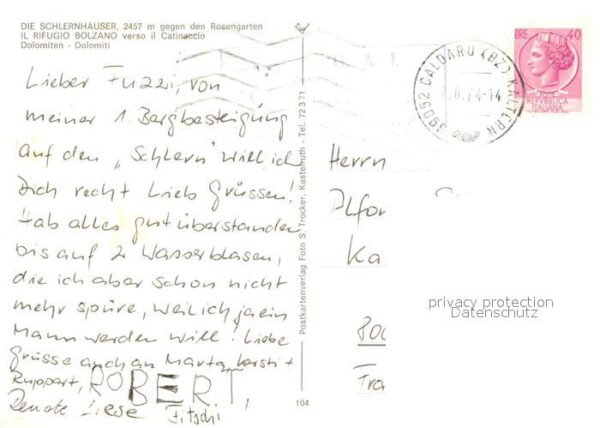 DIE SCHLERNHÄUSER, 2457 m gegen den Rosengarten
IL RIFUGIO BOLZANO verso il Catinaccio
Dolomiten - Dolomiti
Lieber Fuzzi, von
meiner 1. Bergbesteigung
auf den "Schlern" will ich
Dich recht lieb grüssen!
Hab alles gut überstanden
bis auf 2 Wasserblasen,
die ich aber schon nicht
mehr spüre, weil ich ja ein
Mann werden will! Liebe
Grüsse auch an Marta, Kerstit +
Ruppert, ROBERT,
Renate Liese Fitschi
Postkartenverlag Foto S. Trocker, Kastelruth - Tel. 72371
104
LIRE 40
REPVBBLICA
ITALIANA
39052 CALDARO (BZ) KALTERN
.8.74-14
Herrn
Alfon
Ka
800
Fra
privacy protection
Datenschutz